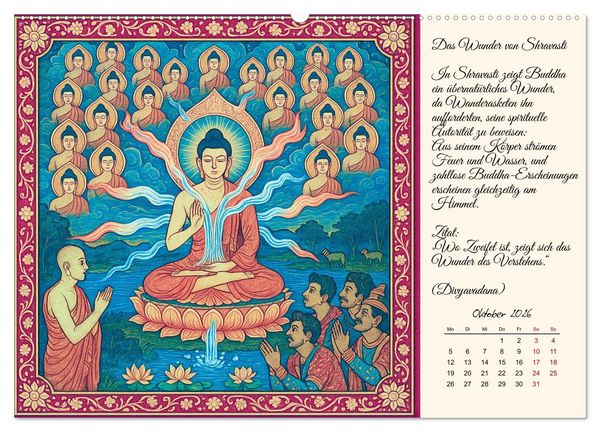 Das Wunder von Shravasti
In Shravasti zeigt Buddha
ein übernatürliches Wunder,
da Wanderasketen ihn
aufforderten, seine spirituelle
Autorität zu beweisen:
Aus seinem Körper strömen
Feuer und Wasser, und
zahllose Buddha-Erscheinungen
erscheinen gleichzeitig am
Himmel.
Zitat:
„Wo Zweifel ist, zeigt sich das
Wunder des Verstehens.“
(Divyavadana)
Oktober 2026
Mo Di Mi Do Fr Sa So
1 2 3 4
5 6 7 8 9 10 11
12 13 14 15 16 17 18
19 20 21 22 23 24 25
26 27 28 29 30 31